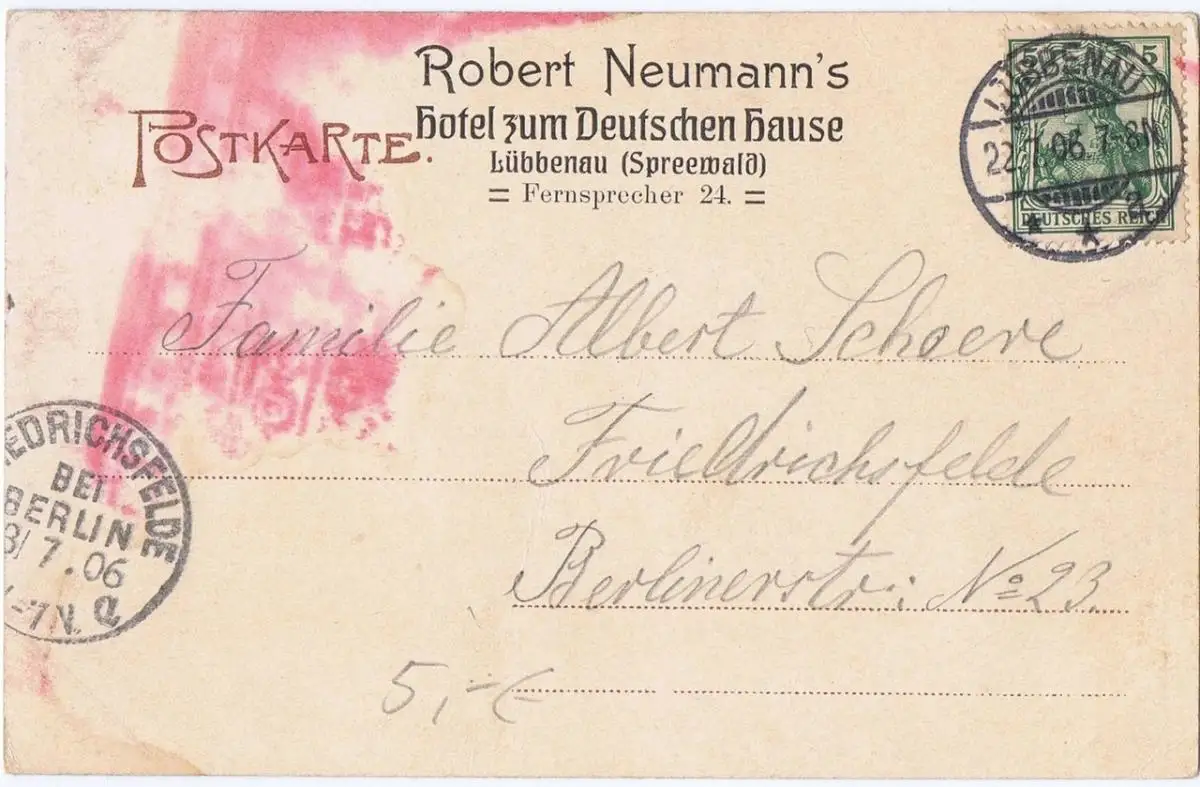 Robert Neumann's
POSTKARTE.
Hotel zum Deutschen Hause
Lübbenau (Spreewald)
= Fernsprecher 24. =
5 5
DEUTSCHES REICH
LÜBBENAU
22.7.06.7-8N
* * a
Familie Albert Schoere
Friedrichsfelde
Berlinerstr: No 23.
IEDRICHSFELDE
BEI
BERLIN
3/7.06
-7V. a
5,-€